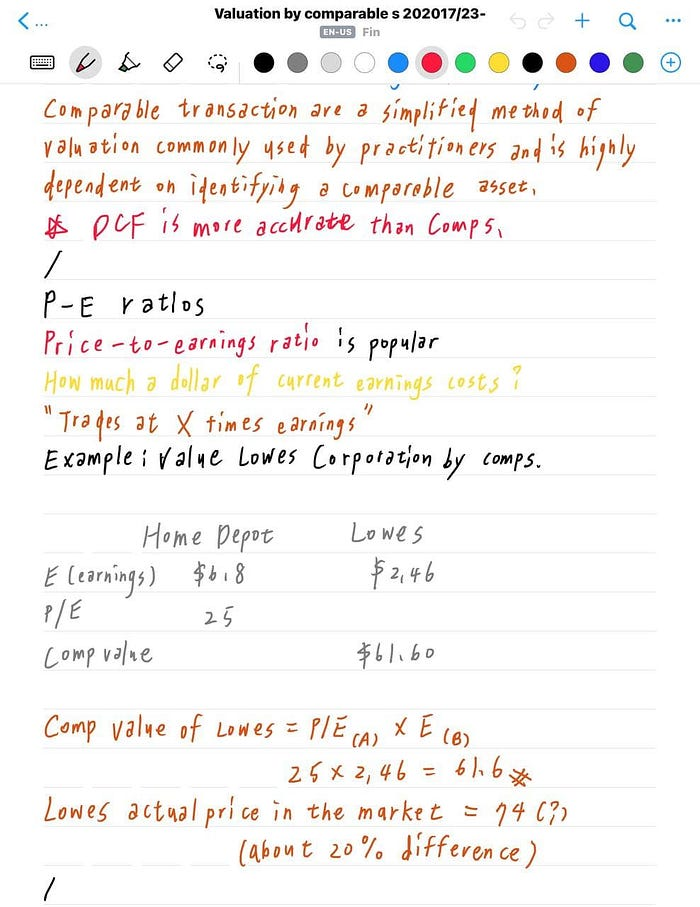 Valuation by comparable s 202017/23-
EN-US Fin
Comparable transaction are a simplified method of
valuation commonly used by practitioners and is highly
dependent on identifying a comparable asset.
DCF is more accurate than Comps.
/
P-E ratios
Price-to-earnings ratio is popular
How much a dollar of current earnings costs?
"Trades at X times earnings"
Example: Value Lowes Corporation by comps.
Home Depot Lowes
E (earnings) $6.8 $2.46
P/E 25
Comp value $61.60
Comp value of Lowes = P/E (A) x E (B)
25 x 2.46 = 61.6
Lowes actual price in the market = 74 (?)
(about 20% difference)
/